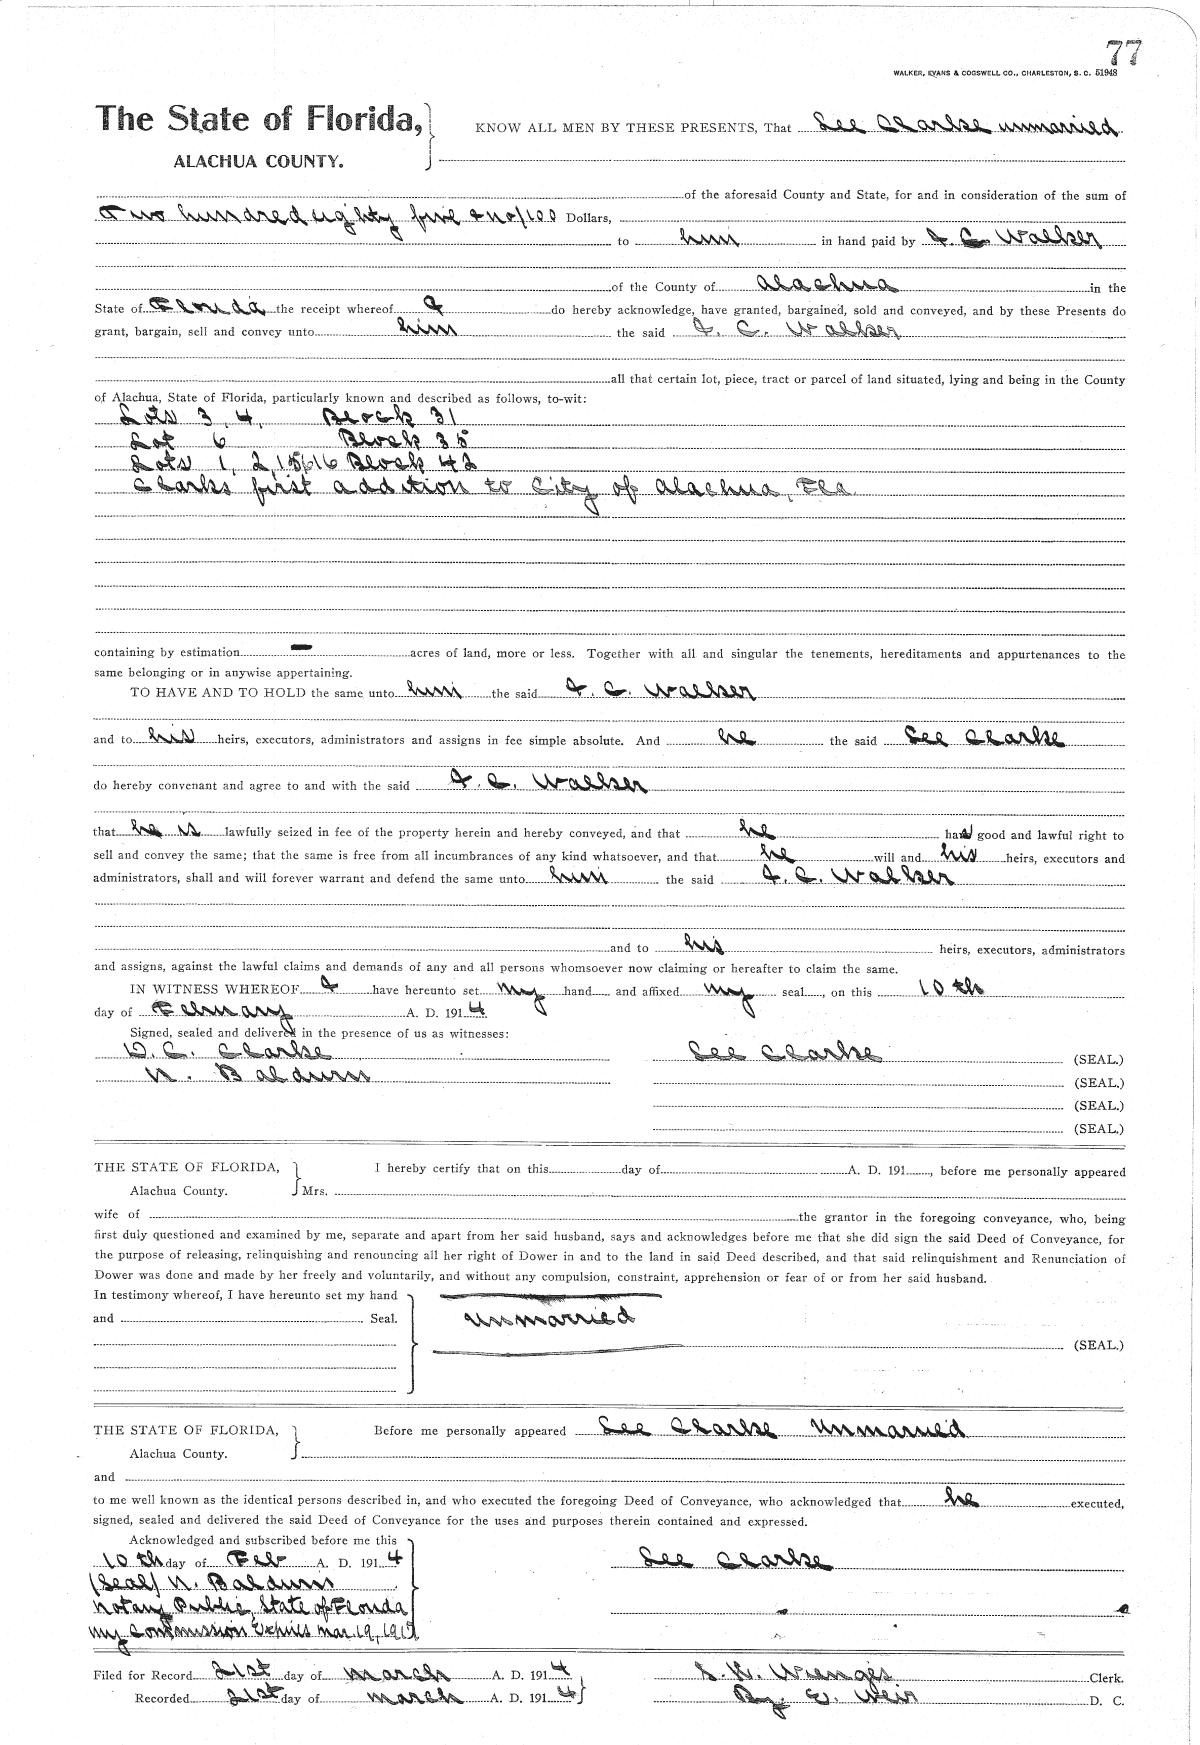 77
WALKER, EVANS & COGSWELL CO., CHARLESTON, S. C. 51948
The State of Florida, KNOW ALL MEN BY THESE PRESENTS, That See Clarke unmarried
ALACHUA COUNTY.
of the aforesaid County and State, for and in consideration of the sum of
Two hundred eighty five & no/100 Dollars,
to him in hand paid by J. C. Walker
of the County of Alachua in the
State of Florida the receipt whereof I do hereby acknowledge, have granted, bargained, sold and conveyed, and by these Presents do
grant, bargain, sell and convey unto him the said J. C. Walker
all that certain lot, piece, tract or parcel of land situated, lying and being in the County
of Alachua, State of Florida, particularly known and described as follows, to-wit:
Lots 3, 4, Block 31
Lot 6 Block 35
Lots 1, 2, 15 & 16 Block 42
Clarks first addition to City of Alachua, Fla.
containing by estimation — acres of land, more or less. Together with all and singular the tenements, hereditaments and appurtenances to the
same belonging or in anywise appertaining.
TO HAVE AND TO HOLD the same unto him the said J. C. Walker
and to his heirs, executors, administrators and assigns in fee simple absolute. And he the said See Clarke
do hereby convenant and agree to and with the said J. C. Walker
that he is lawfully seized in fee of the property herein and hereby conveyed, and that he has good and lawful right to
sell and convey the same; that the same is free from all incumbrances of any kind whatsoever, and that he will and his heirs, executors and
administrators, shall and will forever warrant and defend the same unto him the said J. C. Walker
and to his heirs, executors, administrators
and assigns, against the lawful claims and demands of any and all persons whomsoever now claiming or hereafter to claim the same.
IN WITNESS WHEREOF I have hereunto set my hand and affixed my seal, on this 10th
day of February A. D. 1914
Signed, sealed and delivered in the presence of us as witnesses:
D. C. Clarke See Clarke (SEAL.)
N. Baldwin (SEAL.)
(SEAL.)
(SEAL.)
THE STATE OF FLORIDA, I hereby certify that on this day of A. D. 191, before me personally appeared
Alachua County. Mrs.
wife of the grantor in the foregoing conveyance, who, being
first duly questioned and examined by me, separate and apart from her said husband, says and acknowledges before me that she did sign the said Deed of Conveyance, for
the purpose of releasing, relinquishing and renouncing all her right of Dower in and to the land in said Deed described, and that said relinquishment and Renunciation of
Dower was done and made by her freely and voluntarily, and without any compulsion, constraint, apprehension or fear of or from her said husband.
In testimony whereof, I have hereunto set my hand
and Seal. unmarried
(SEAL.)
THE STATE OF FLORIDA, Before me personally appeared See Clarke Unmarried
Alachua County.
and
to me well known as the identical persons described in, and who executed the foregoing Deed of Conveyance, who acknowledged that he executed,
signed, sealed and delivered the said Deed of Conveyance for the uses and purposes therein contained and expressed.
Acknowledged and subscribed before me this
10th day of Feb A. D. 1914 See Clarke
(Seal) N. Baldwin
Notary Public, State of Florida
my Commission Expires Mar. 19, 1917
Filed for Record 21st day of March A. D. 1914 S. H. Wienges Clerk.
Recorded 21st day of March A. D. 1914 By. E. Weir D. C.